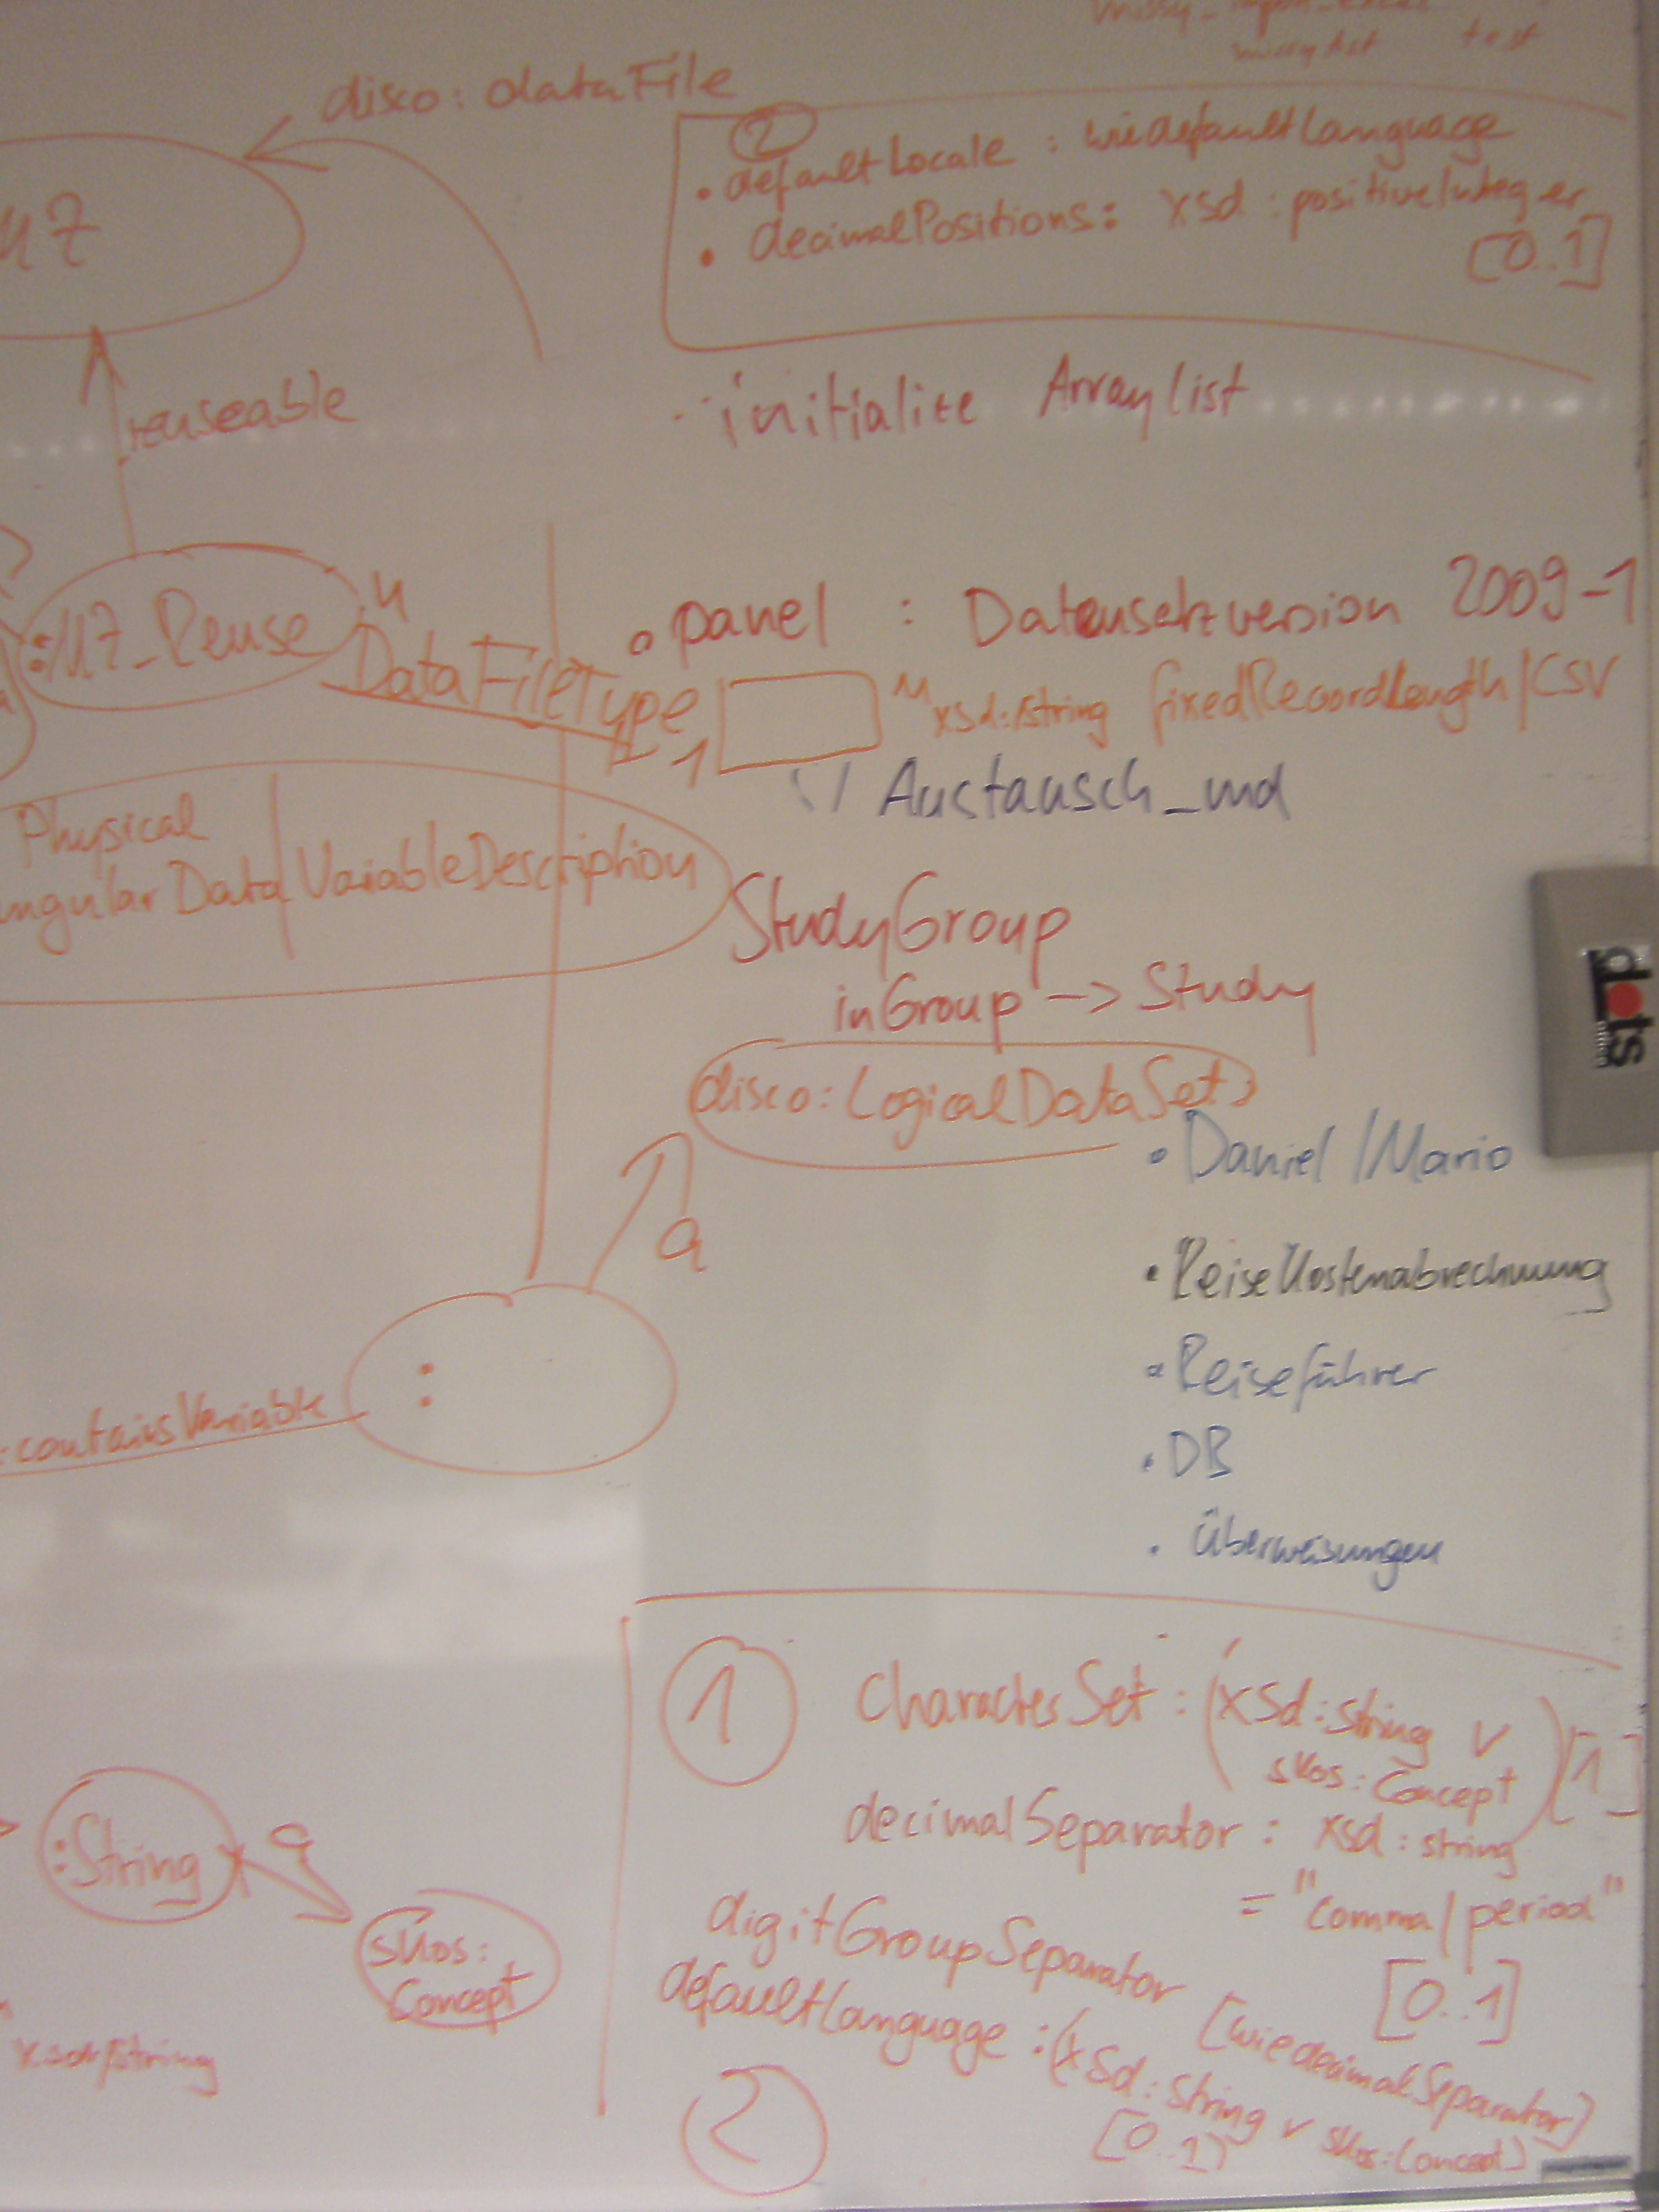 test
disco: dataFile
②
• defaultLocale : wie defaultLanguage
• decimalPositions: xsd:positiveInteger
[0..1]
reuseable
initialize ArrayList
:M7_Reuse
n
DataFileType
1
panel : Datensatzversion 2009-1
n xsd:string fixedRecordLength/CSV
Austausch_und
Physical
ngular Data VariableDescription
StudyGroup
inGroup -> Study
disco:LogicalDataSet
a
• Daniel/Mario
• Reisekostenabrechnung
• Reiseführer
• DB
• Überweisungen
:
:containsVariable
dots
① CharacterSet : (xsd:string v
skos:Concept) [1]
decimalSeparator : xsd:string
= "comma/period"
[0..1]
digitGroupSeparator [wie decimalSeparator]
defaultLanguage : (xsd:string v skos:Concept)
[0..1]
②
:String
a
skos:
Concept
xsd:string